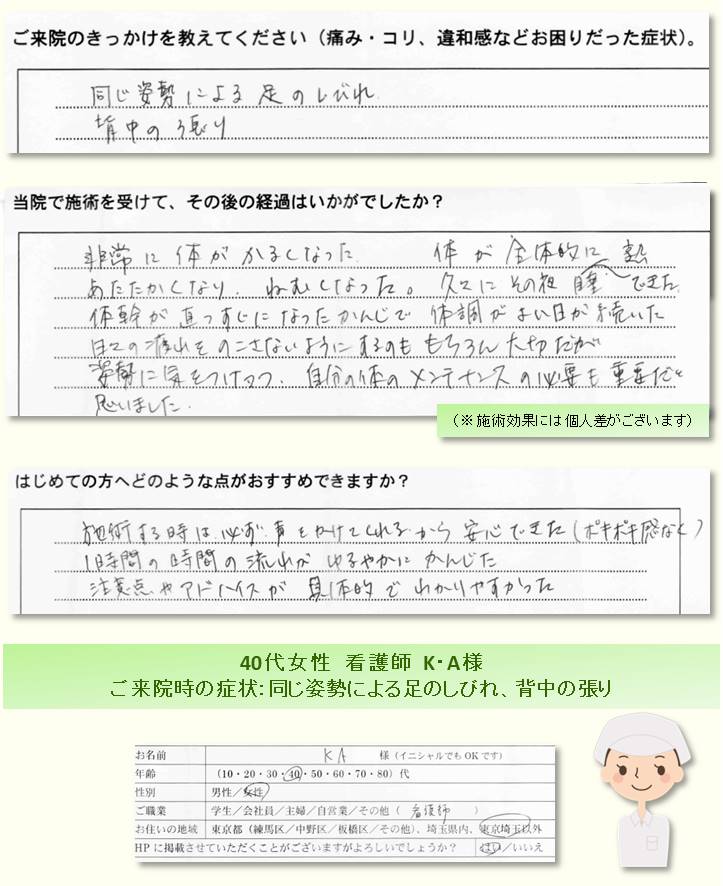 ご来院のきっかけを教えてください（痛み・コリ、違和感などお困りだった症状）。
同じ姿勢による足のしびれ
背中の張り
当院で施術を受けて、その後の経過はいかがでしたか？
非常に体がかるくなった。 体が全体的に
あたたかくなり、ねむくなった。久々にその夜 できた。
体幹が真っすぐになったかんじで 体調がよい日が続いた
日々の疲れをのこさないようにするのももちろん大切だが
姿勢に気をつけつつ、自分の体のメンテナンスの必要も重要だと
思いました。
（※施術効果には個人差がございます）
はじめての方へどのような点がおすすめできますか？
施術する時は必ず声をかけてくれるから安心できた（ボキボキ感なく）
1時間の時間の流れがゆるやかにかんじた
注意点やアドバイスが具体的でわかりやすかった
40代女性 看護師 K・A様
ご来院時の症状：同じ姿勢による足のしびれ、背中の張り
お名前 K A 様（イニシャルでもOKです）
年齢 （10・20・30・40・50・60・70・80）代
性別 男性／女性
ご職業 学生／会社員／主婦／自営業／その他（ 看護師 ）
お住いの地域 東京都（練馬区／中野区／板橋区／その他）、埼玉県内、東京埼玉以外
HPに掲載させていただくことがございますがよろしいでしょうか？ はい／いいえ